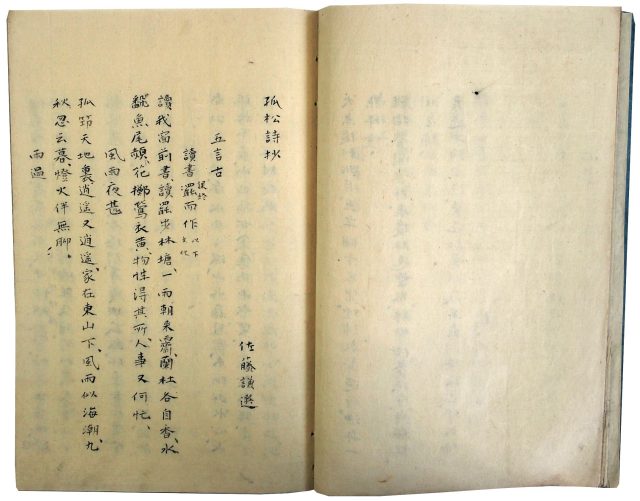 孤松詩抄
佐藤謙
五言古
讀書罷而作 以下
讀我窗前書、讀罷步林塘、一雨朝来霽、蘭杜各自香、水
飜魚尾頳、花擲鶯衣黄、物性得其所、人事又何忙、
風雨夜甚
孤筇天地裏、逍遥又逍遥、家在東山下、風雨似海潮、九
秋忽云暮、燈火伴無聊、
雨過